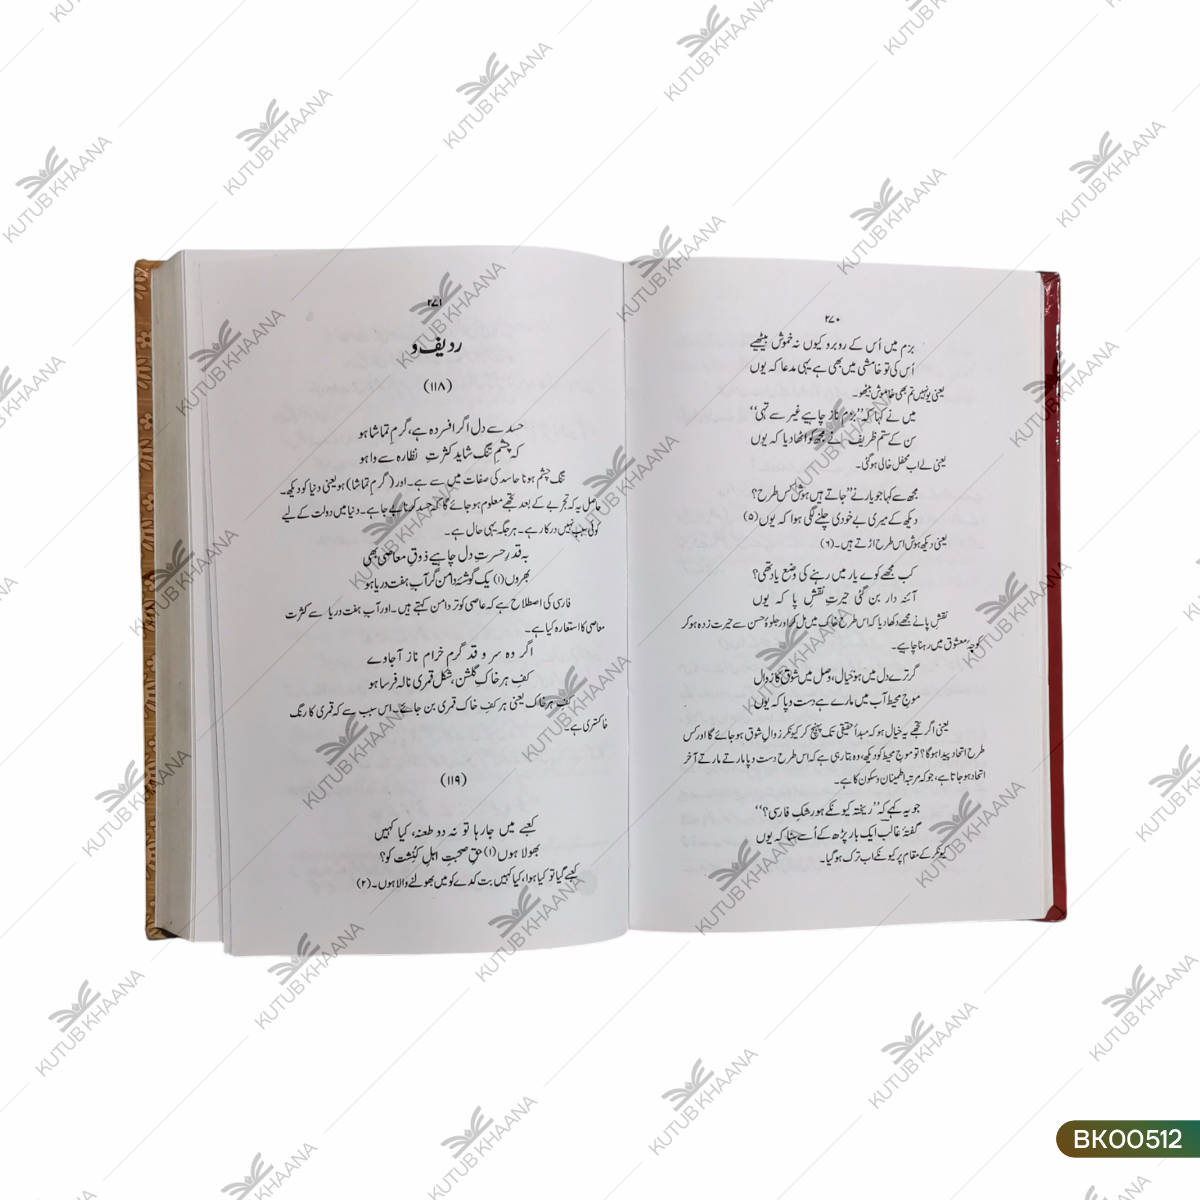 ۲۷۰
بزم میں اُس کے روبرو کیوں نہ خموش بیٹھیے
اُس کی تو خامشی میں بھی ہے یہی مدعا کہ یوں
یعنی یونہیں تم بھی خاموش بیٹھو۔
میں نے کہا کہ "بزمِ ناز چاہیے غیر سے تہی"
سن کے ستم ظریف نے مجھ کو اٹھا دیا کہ یوں
یعنی لے اب محفل خالی ہوگئی۔
مجھ سے کہا جو یار نے "جاتے ہیں ہوش کس طرح؟
دیکھ کے میری بے خودی چلنے لگی ہوا کہ یوں (۵)
یعنی دیکھ ہوش اس طرح اڑتے ہیں۔ (۶)
کب مجھے کوے یار میں رہنے کی وضع یاد تھی؟
آئنہ دار بن گئی حیرتِ نقشِ پا کہ یوں
نقشِ پا نے مجھے دکھا دیا کہ اس طرح خاک میں مل کر اور جلوۂ حسن سے حیرت زدہ ہوکر
کوچۂ معشوق میں رہنا چاہے۔
گر ترے دل میں ہو خیال، وصل میں شوق کا زوال
موج محیطِ آب میں مارے ہے دست و پا کہ یوں
یعنی اگر تجھے یہ خیال ہو کہ مبدأ حقیقی تک پہنچ کر کیونکر زوالِ شوق ہو جائے گا اور کس
طرح اتحاد پیدا ہوگا؟ تو موج محیط کو دیکھ، وہ بتا رہی ہے کہ اس طرح دست و پا مارتے مارتے آخر
اتحاد ہو جاتا ہے، جو کہ مرتبہ اطمینان و سکون کا ہے۔
جو یہ کہے کہ "ریختہ کیونکے ہو رشکِ فارسی؟"
گفتۂ غالب ایک بار پڑھ کے اُسے سنا کہ یوں
کیونکر کے مقام پر کیونکے اب ترک ہو گیا۔
۲۷۱
ردیف و
(۱۱۸)
حسد سے دل اگر افسردہ ہے، گرم تماشا ہو
کہ چشمِ تنگ شاید کثرتِ نظارہ سے وا ہو
تنگ چشم ہونا حاسد کی صفات میں سے ہے۔ اور (گرم تماشا) ہو یعنی دنیا کو دیکھ۔
حاصل یہ کہ تجربے کے بعد تجھے معلوم ہو جائے گا کہ حسد کرنا بے جا ہے۔ دنیا میں دولت کے لیے
کوئی سبب نہیں درکار ہے۔ ہر جگہ یہی حال ہے۔
بہ قدرِ حسرتِ دل چاہیے ذوقِ معاصی بھی
بھروں (۱) یک گوشۂ دامن گر آبِ ہفت دریا ہو
فارسی کی اصطلاح ہے کہ عاصی کو تر دامن کہتے ہیں۔ اور آبِ ہفت دریا سے کثرت
معاصی کا استعارہ کیا ہے۔
اگر وہ سرو قد گرم خرامِ ناز آجاوے
کفِ ہر خاکِ گلشن، شکلِ قمری نالہ فرسا ہو
کفِ ہر خاک یعنی ہر کفِ خاک قمری بن جائے۔ اس سبب سے کہ قمری کا رنگ
خاکستری ہے۔
(۱۱۹)
کعبے میں جا رہا تو نہ دو طعنہ، کیا کہیں
بھولا ہوں (۱) حقِ صحبتِ اہلِ کنشت کو؟
کعبے گیا تو کیا ہوا، کیا کہیں بت کدے کو میں بھولنے والا ہوں۔ (۲)
KUTUB KHAANA
BK00512